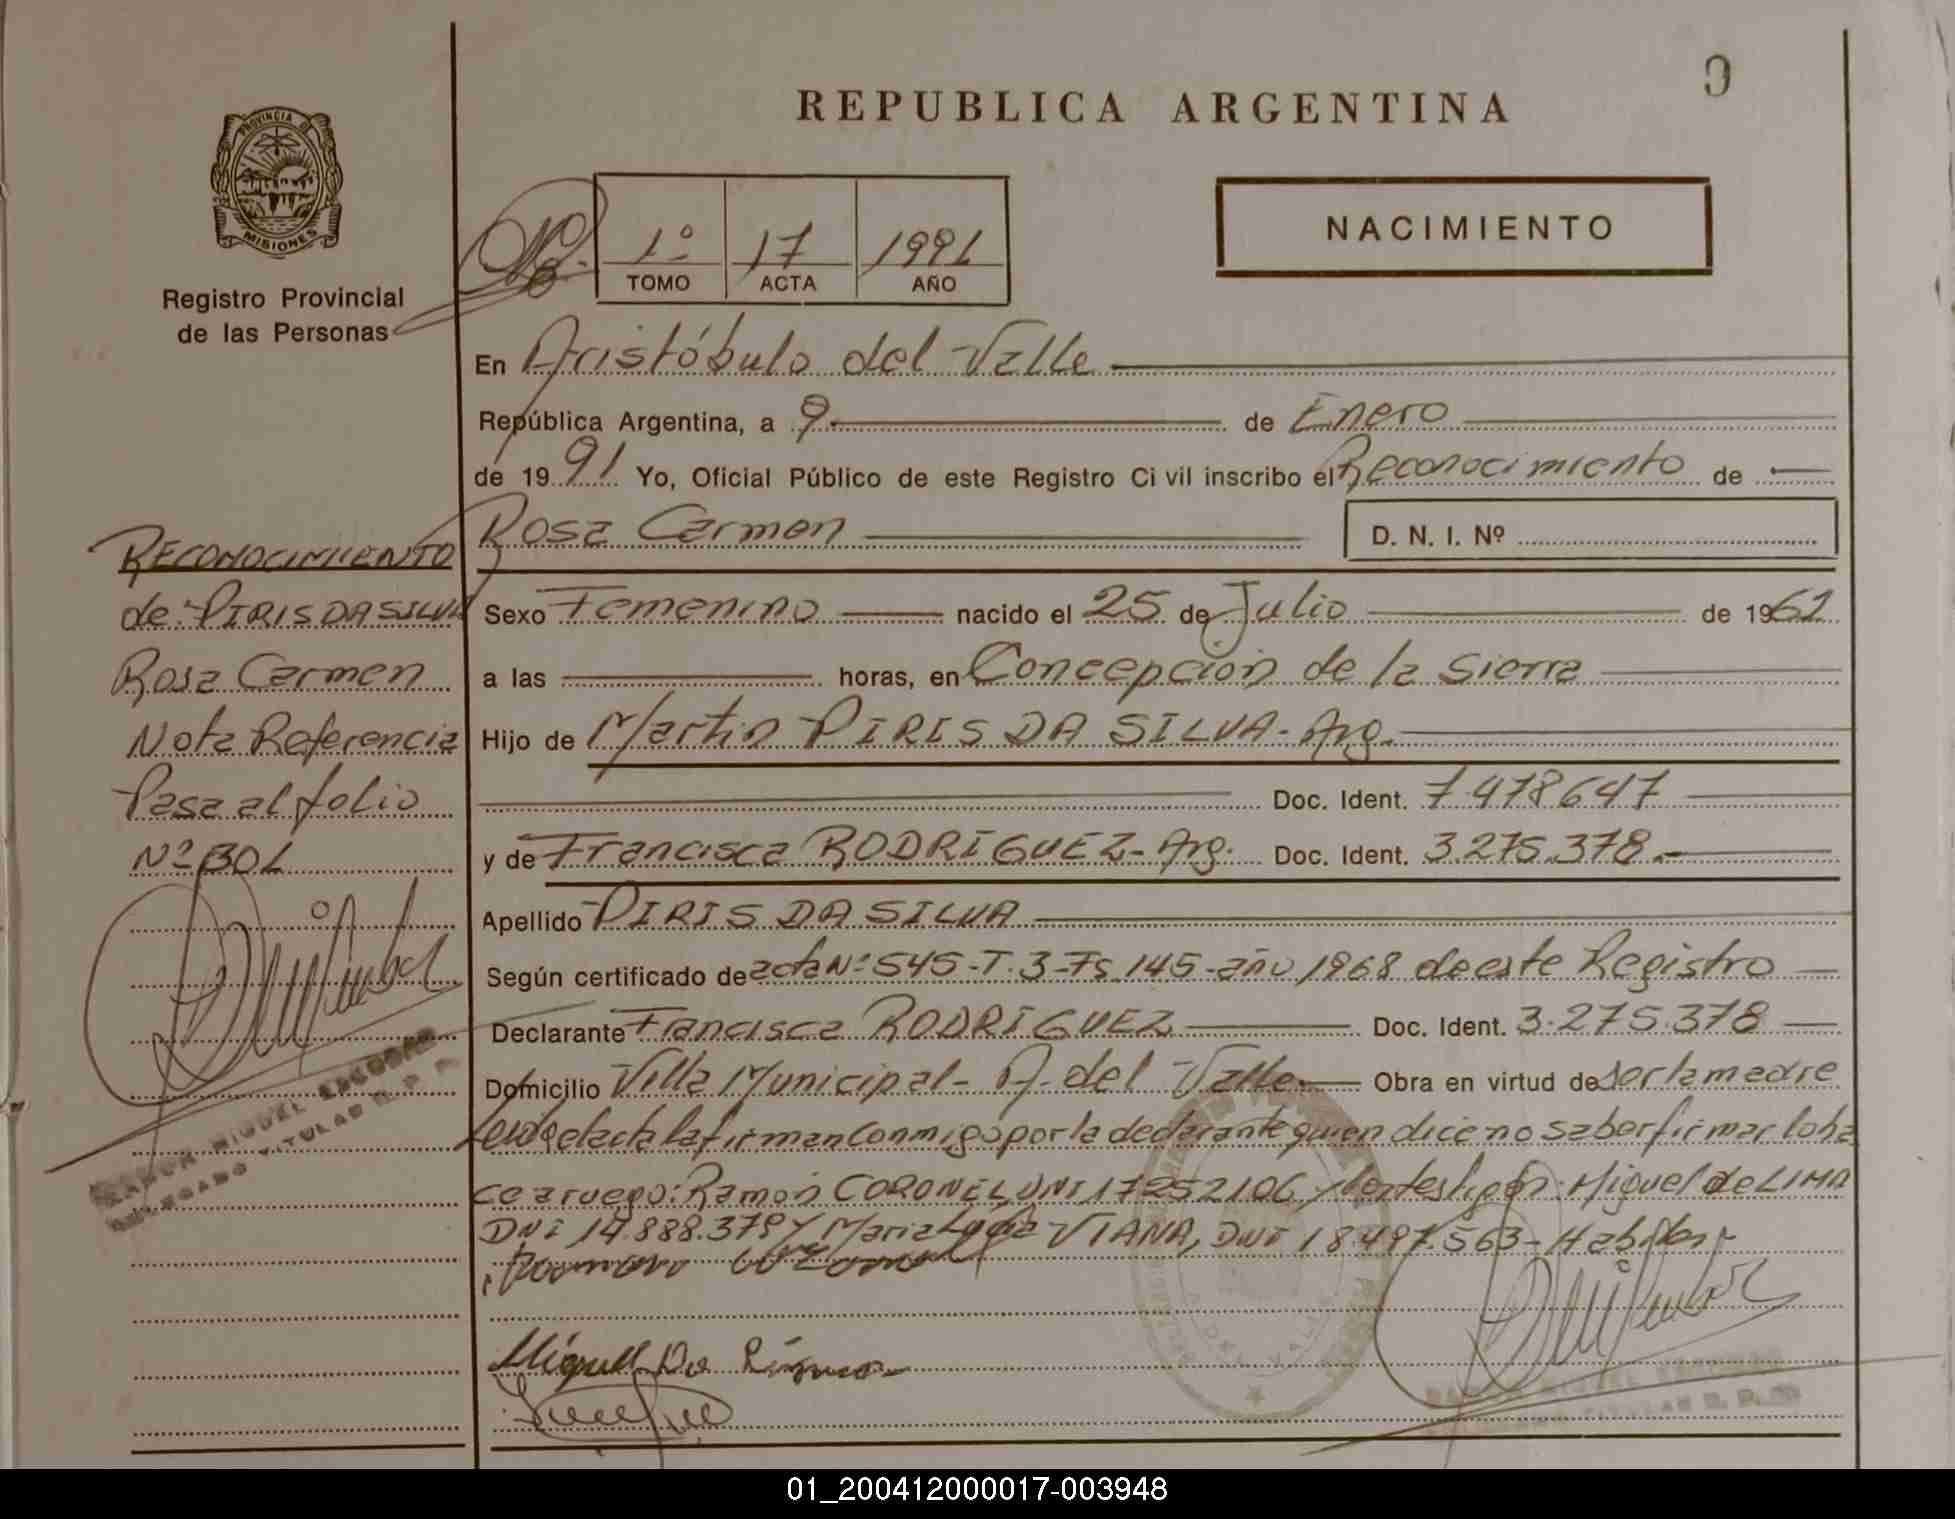 REPUBLICA ARGENTINA
PROVINCIA DE
MISIONES
Registro Provincial
de las Personas
1º 17 1991
TOMO ACTA AÑO
NACIMIENTO
En Aristóbulo del Valle
República Argentina, a 9 de Enero
de 1991 Yo, Oficial Público de este Registro Civil inscribo el Reconocimiento de
Rosa Carmen D. N. I. Nº
Sexo Femenino nacido el 25 de Julio de 1962
a las horas, en Concepción de la Sierra
Hijo de Martin PIRIS DA SILVA - Arg.
Doc. Ident. 7.478647
y de Francisca RODRIGUEZ - Arg. Doc. Ident. 3.275.378.-
Apellido PIRIS DA SILVA
Según certificado de acta Nº 545-T.3-Fs.145-año 1968 de este Registro
Declarante Francisca RODRIGUEZ Doc. Ident. 3.275.378
Domicilio Villa Municipal - A. del Valle Obra en virtud de ser la madre
Leida el acta la firman conmigo por la declarante quien dice no saber firmar lo ha
ce a ruego: Ramón CORONEL DNI 17252106 y los testigos: Miguel de LIMA
DNI 14.888.379 y Maria Lucia VIANA, DNI 18.497.563 - Habiles
Miguel De Lima
RECONOCIMIENTO
de: PIRIS DA SILVA
Rosa Carmen
Nota Referencia
Pasa al folio
Nº 301
RAMON MIGUEL ESCOBAR
DELEGADO TITULAR R. P. P.
DEL VALLE
01_200412000017-003948